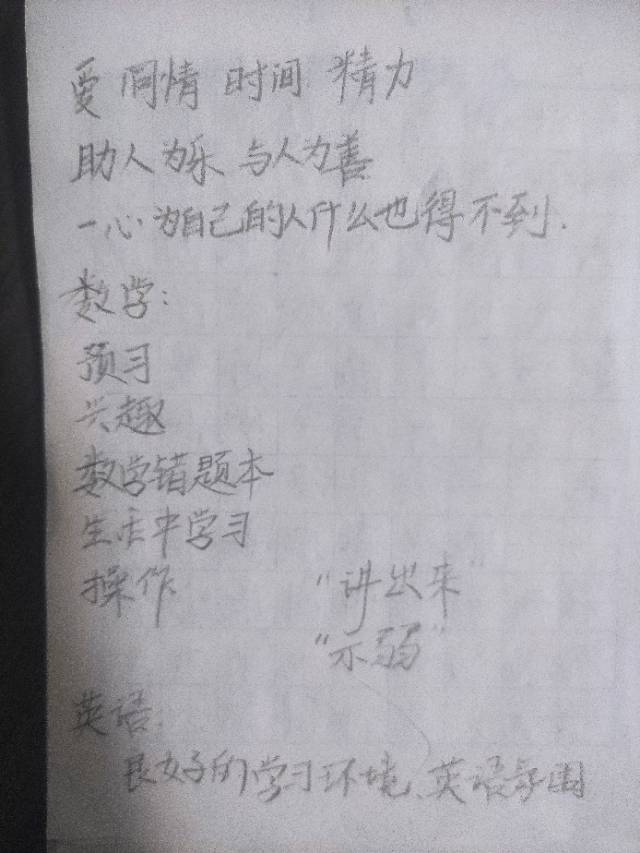 爱 同情 时间 精力
助人为乐 与人为善
一心为自己的人什么也得不到.
数学:
预习
兴趣
数学错题本
生活中学习
操作 "讲出来"
"示弱"
英语:
良好的学习环境、英语氛围